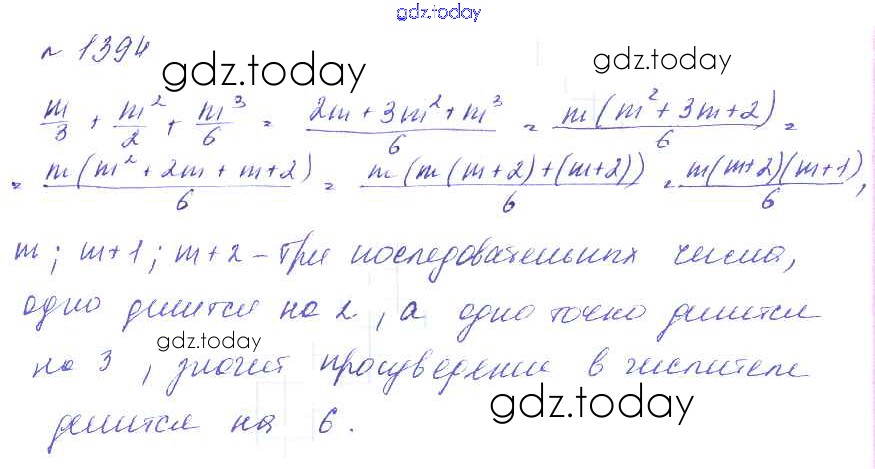 gdz.today
№ 1394
gdz.today
gdz.today
m/3 + m²/2 + m³/6 = (2m + 3m² + m³)/6 = m(m² + 3m + 2)/6 =
= m(m² + 2m + m + 2)/6 = m(m(m+2) + (m+2))/6 = m(m+2)(m+1)/6,
m; m+1; m+2 – три последовательных числа,
одно делится на 2, а одно точно делится
gdz.today
на 3, значит произведение в числителе
gdz.today
делится на 6.